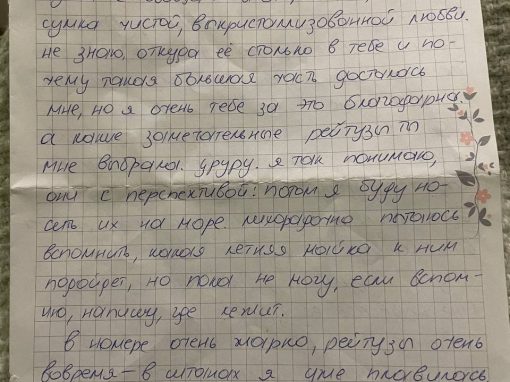 сумка чистой, выкристаллизованной любви.
не знаю, откуда её столько в тебе и по-
чему такая большая часть досталась
мне, но я очень тебе за это благодарна
а какие замечательные рейтузы ты
мне выбрала. уруру. я так понимаю,
они с перспективой: потом я буду но-
сить их на море. лихорадочно пытаюсь
вспомнить, какая летняя майка к ним
подойдет, но пока не могу, если вспом-
ню, напишу, где лежит.
в номере очень жарко, рейтузы очень
вовремя — в штанах я уже плавилась